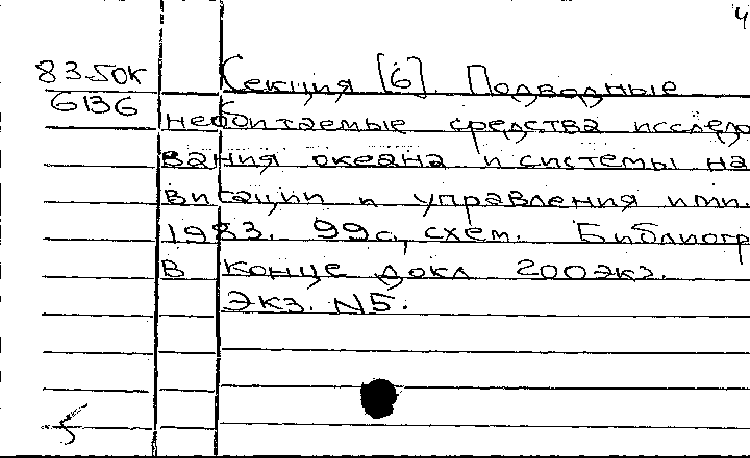 4
83-50К
6136
Секция [6]. Подводные
необитаемые средства исследо
вания океана и системы на
вигации и управления ими.
1983. 99с, схем. Библиогр
в конце докл 200экз.
Экз. N5.
5